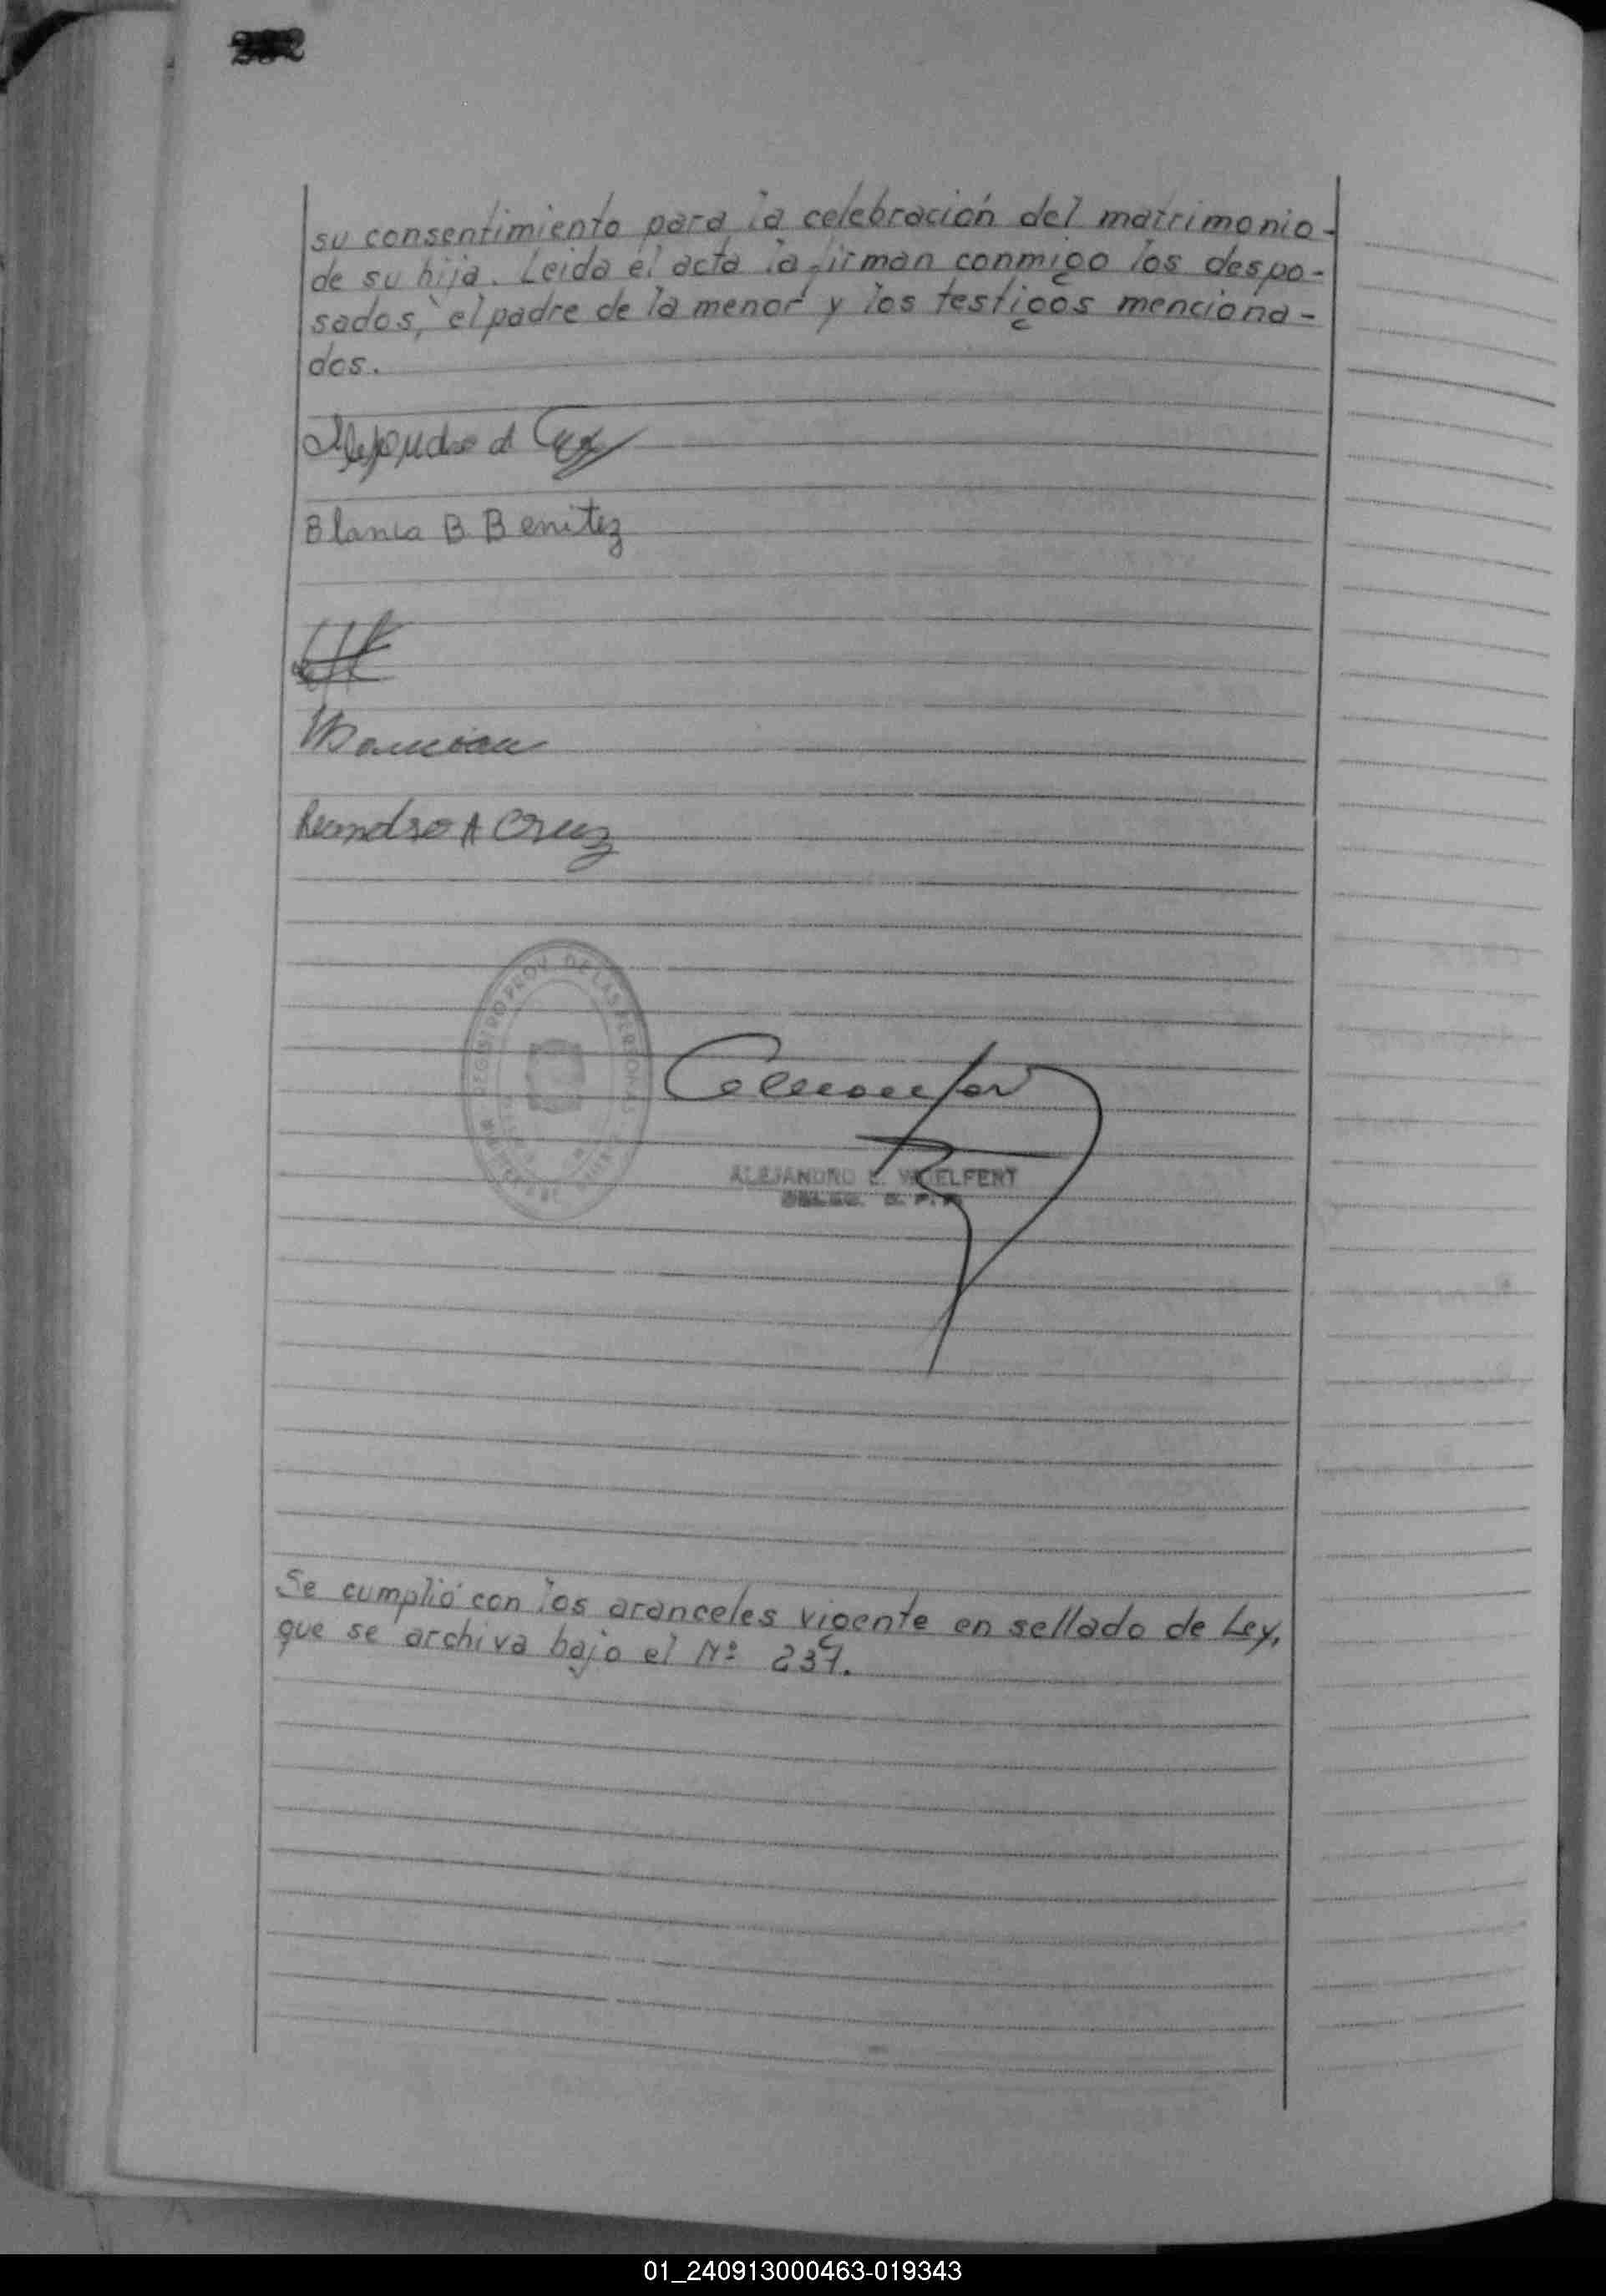 su consentimiento para la celebración del matrimonio-
de su hija. Leida el acta la firman conmigo los despo-
sados, el padre de la menor y los testigos menciona-
dos.
Blanca B. Benitez
Leandro A Cruz
REGISTRO PROV. DE LAS PERSONAS
ALEJANDRO E.
Se cumplió con los aranceles vigente en sellado de Ley,
que se archiva bajo el Nº 237.
01_240913000463-019343